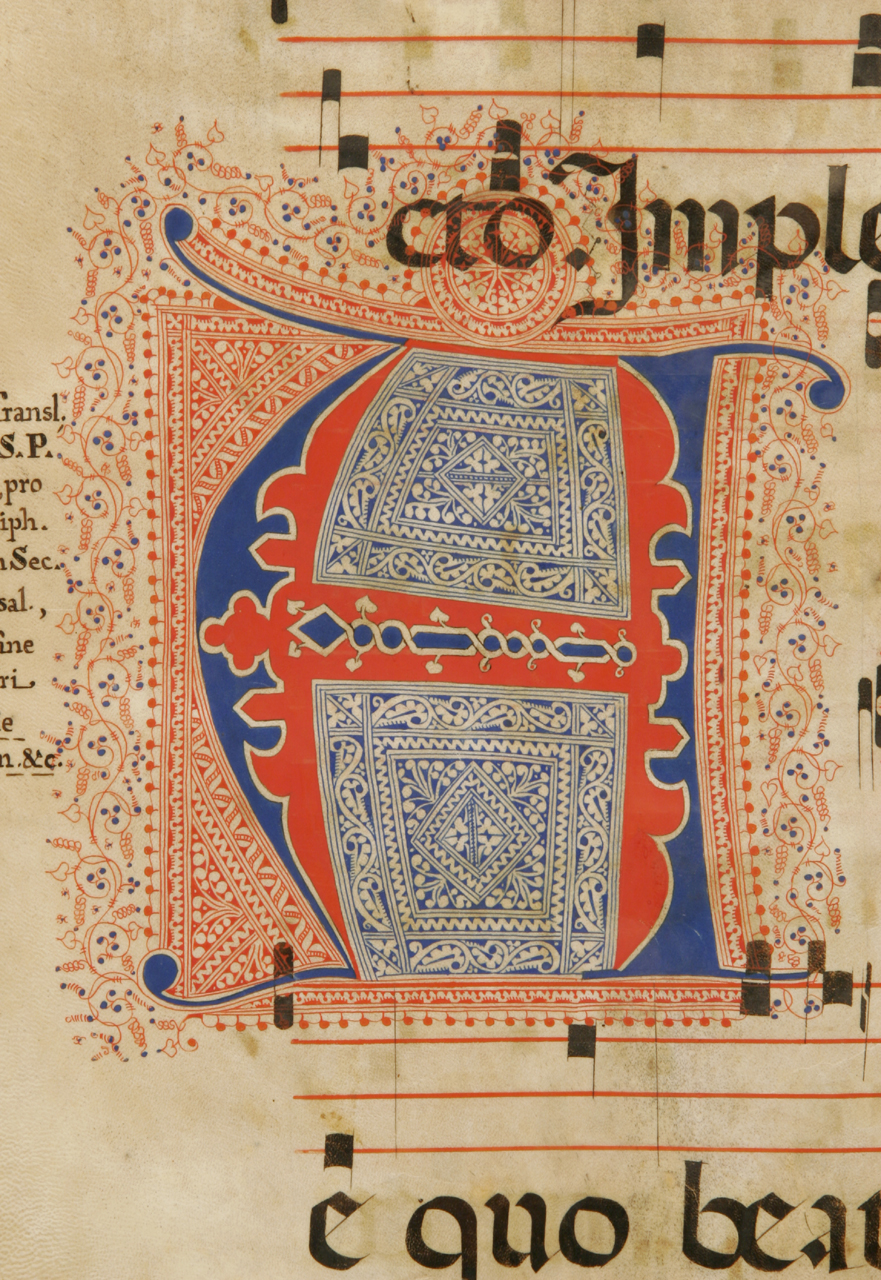 cto. Imple
Transl.
S.P.
pro
iph.
n Sec.
sal.,
fine
ri
le
n. &c.
A
e quo beat